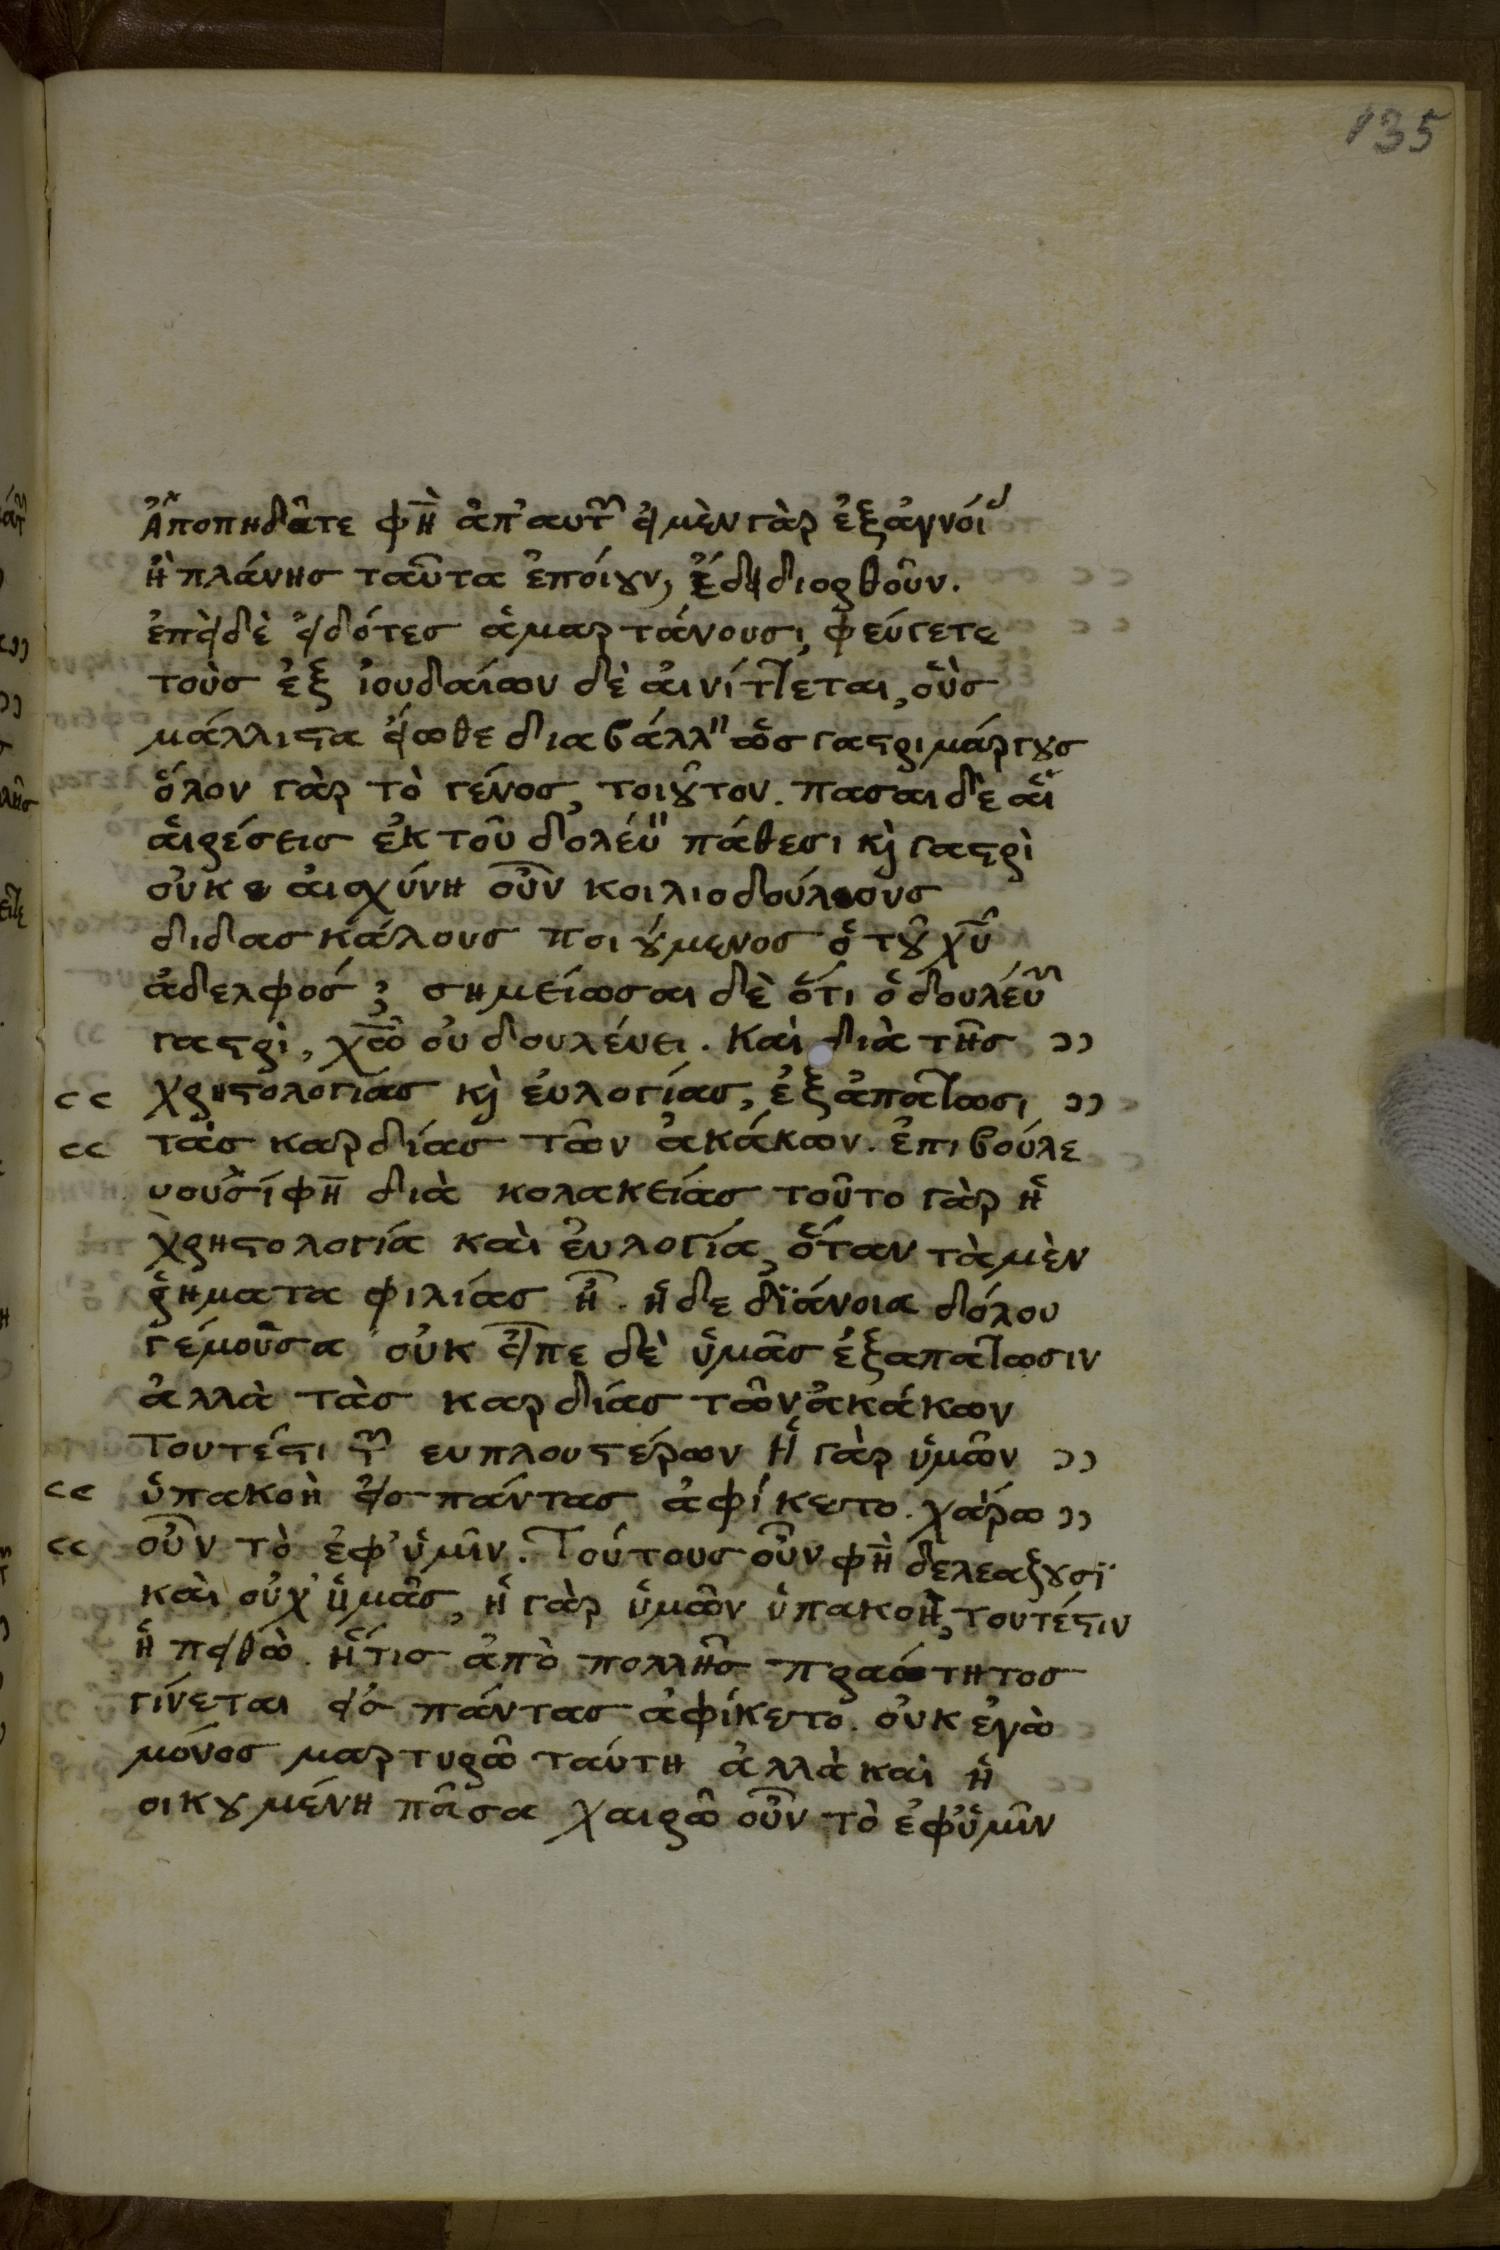 135
Ἀποπηδᾶτε φη̄ ἀπ' αυτ~ εἰ μὲν γὰρ ἐξ ἀγνοί
ἢ πλάνης ταῦτα ἐποίουν, ἔδει διορθοῦν.
ἐπεὶ δὲ εἰδότες ἁμαρτάνουσι, φεύγετε
τοὺς ἐξ ἰουδαίων δὲ ἀινίττεται, οὓς
μάλλιστα εἴωθε διαβάλλ" ὡς γαστριμάργους
ὅλον γὰρ τὸ γένος, τοιοῦτον. πασαι δὲ αἱ
ἁιρέσεις ἐκ τοῦ δολέυ" πάθεσι κὶ γαστρὶ
οὐκ ἀισχύνη οὖν κοιλιοδούλους
διδασκάλους ποιούμενος ὁ τοῦ χῦ
ἀδελφός; σημείωσαι δὲ ὅτι ὁ δουλέυ~
γαστρὶ, χῶ οὐ δουλέυει. Καὶ διὰ τῆς ))
(( χρηστολογίας κὶ ἐυλογίας, ἐξἀπατῶσι ))
(( τὰς καρδίας τῶν ἀκάκων. ἐπιβούλε
υουσί φη̄ διὰ κολακείας τοῦτο γὰρ ἡ
χρηστολογία καὶ ἐυλογία, ὅταν τὰ μὲν
ῥήματα φιλίας ἦ. ἡ δε διάνοια δόλου
γέμουσα οὐκ εἶπε δὲ ὑμᾶς ἐξαπατῶσιν
ἀλλὰ τὰς καρδίας τῶν ἀκάκων
τουτέστι τ~ ευπλουστέρων Ἡ γὰρ ὑμῶν ))
(( ὑπακοὴ εἰς πάντας ἀφίκετο. χαίρω ))
(( οὖν τὸ ἐφ' ὑμῖν. Τούτους οὖν φη̄ δελεαζουσϊ
καὶ οὐχ' ὑμᾶς, ἡ γὰρ ὑμῶν ὑπακοὴ, τουτέστιν
ἡ πειθὼ. ἥτις ἀπὸ πολλῆς πραότητος
γίνεται εἰς πάντας ἀφίκετο. οὐκ ἐγὼ
μόνος μαρτυρῶ ταύτη ἀλλὰ καὶ ἡ
οικουμένη πᾶσα χαιρῶ οὖν τὸ ἐφ' ὑμῖν